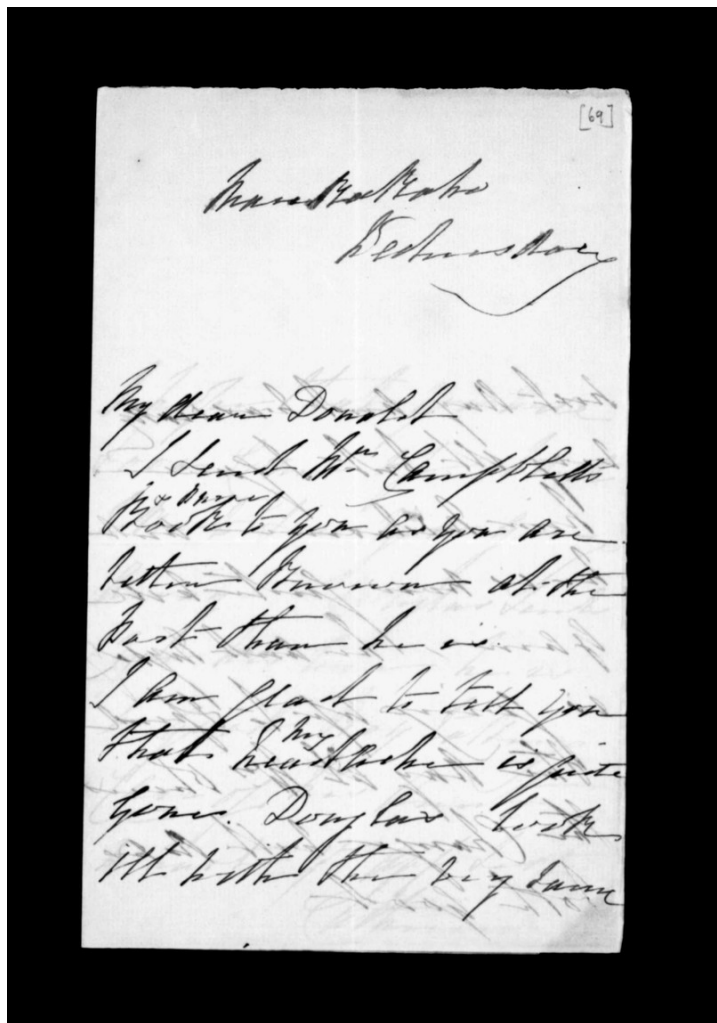 [69]
Maraekakaho
Wednesday
My dear Donald
I send Mr Campbells
Book to you as you are
better known at the
Post than he is.
I am glad to tell you
that my headache is quite
gone. Douglas took
ill with the very same